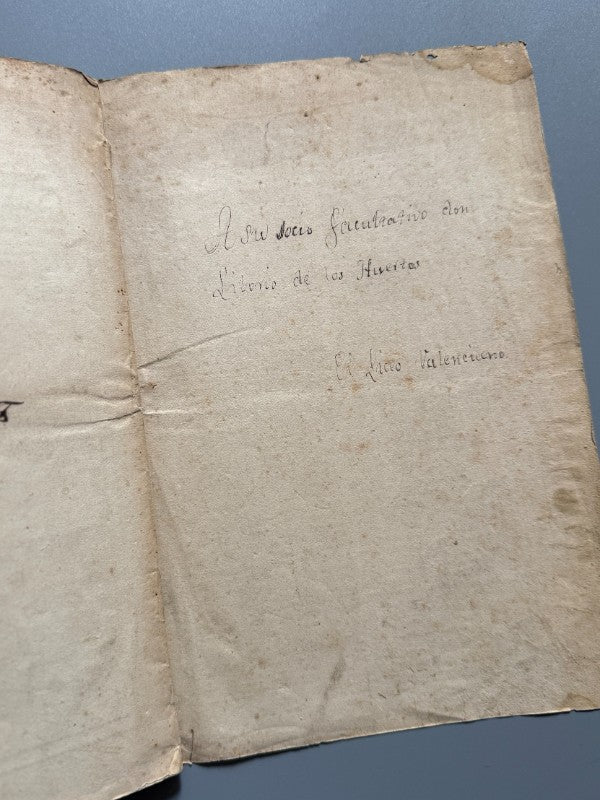 A su socio facultativo don
Liborio de los Huertos
El Liceo Valenciano